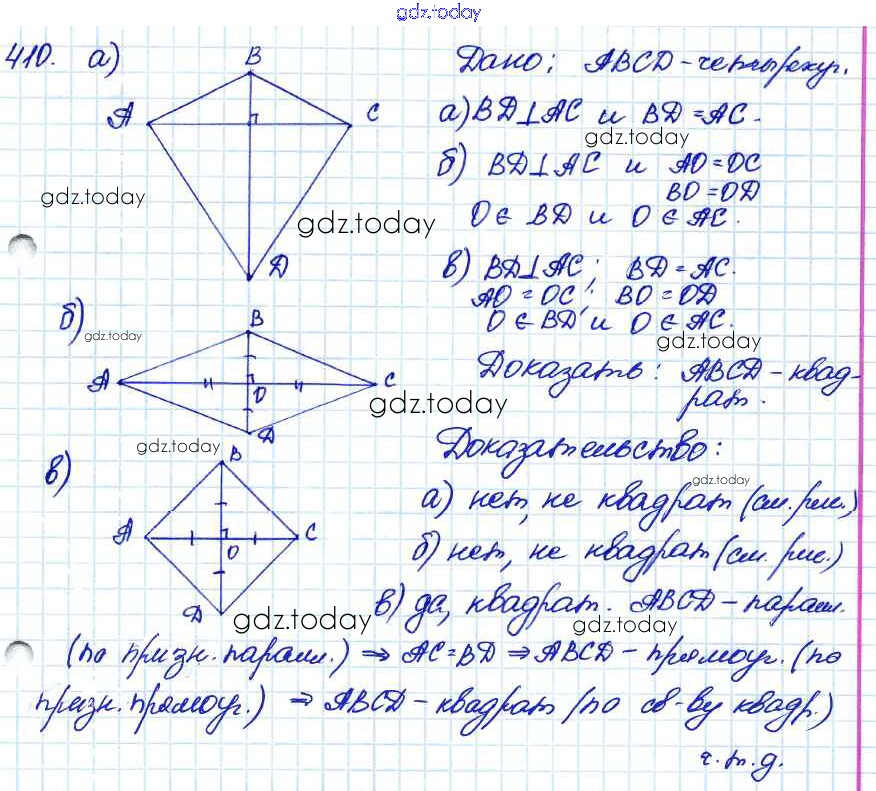 gdz.today
410. а)
B
A
C
D
Дано: ABCD-четырехуг.
а) BD⊥AC и BD=AC.
gdz.today
б) BD⊥AC и AO=OC
BO=OD
O∈BD и O∈AC.
gdz.today
gdz.today
в) BD⊥AC; BD=AC.
AO=OC; BO=OD
O∈BD и O∈AC.
gdz.today
б)
gdz.today
B
A
O
C
D
gdz.today
Доказать: ABCD-квад-
рат.
Доказательство:
gdz.today
gdz.today
в)
B
A
O
C
D
gdz.today
а) нет, не квадрат (см. рис.)
б) нет, не квадрат (см. рис.)
в) да, квадрат. ABCD-паралл.
gdz.today
(по призн. паралл.) ⇒ AC=BD ⇒ ABCD-прямоуг. (по
призн. прямоуг.) ⇒ ABCD-квадрат (по св-ву квадр.)
ч.т.д.